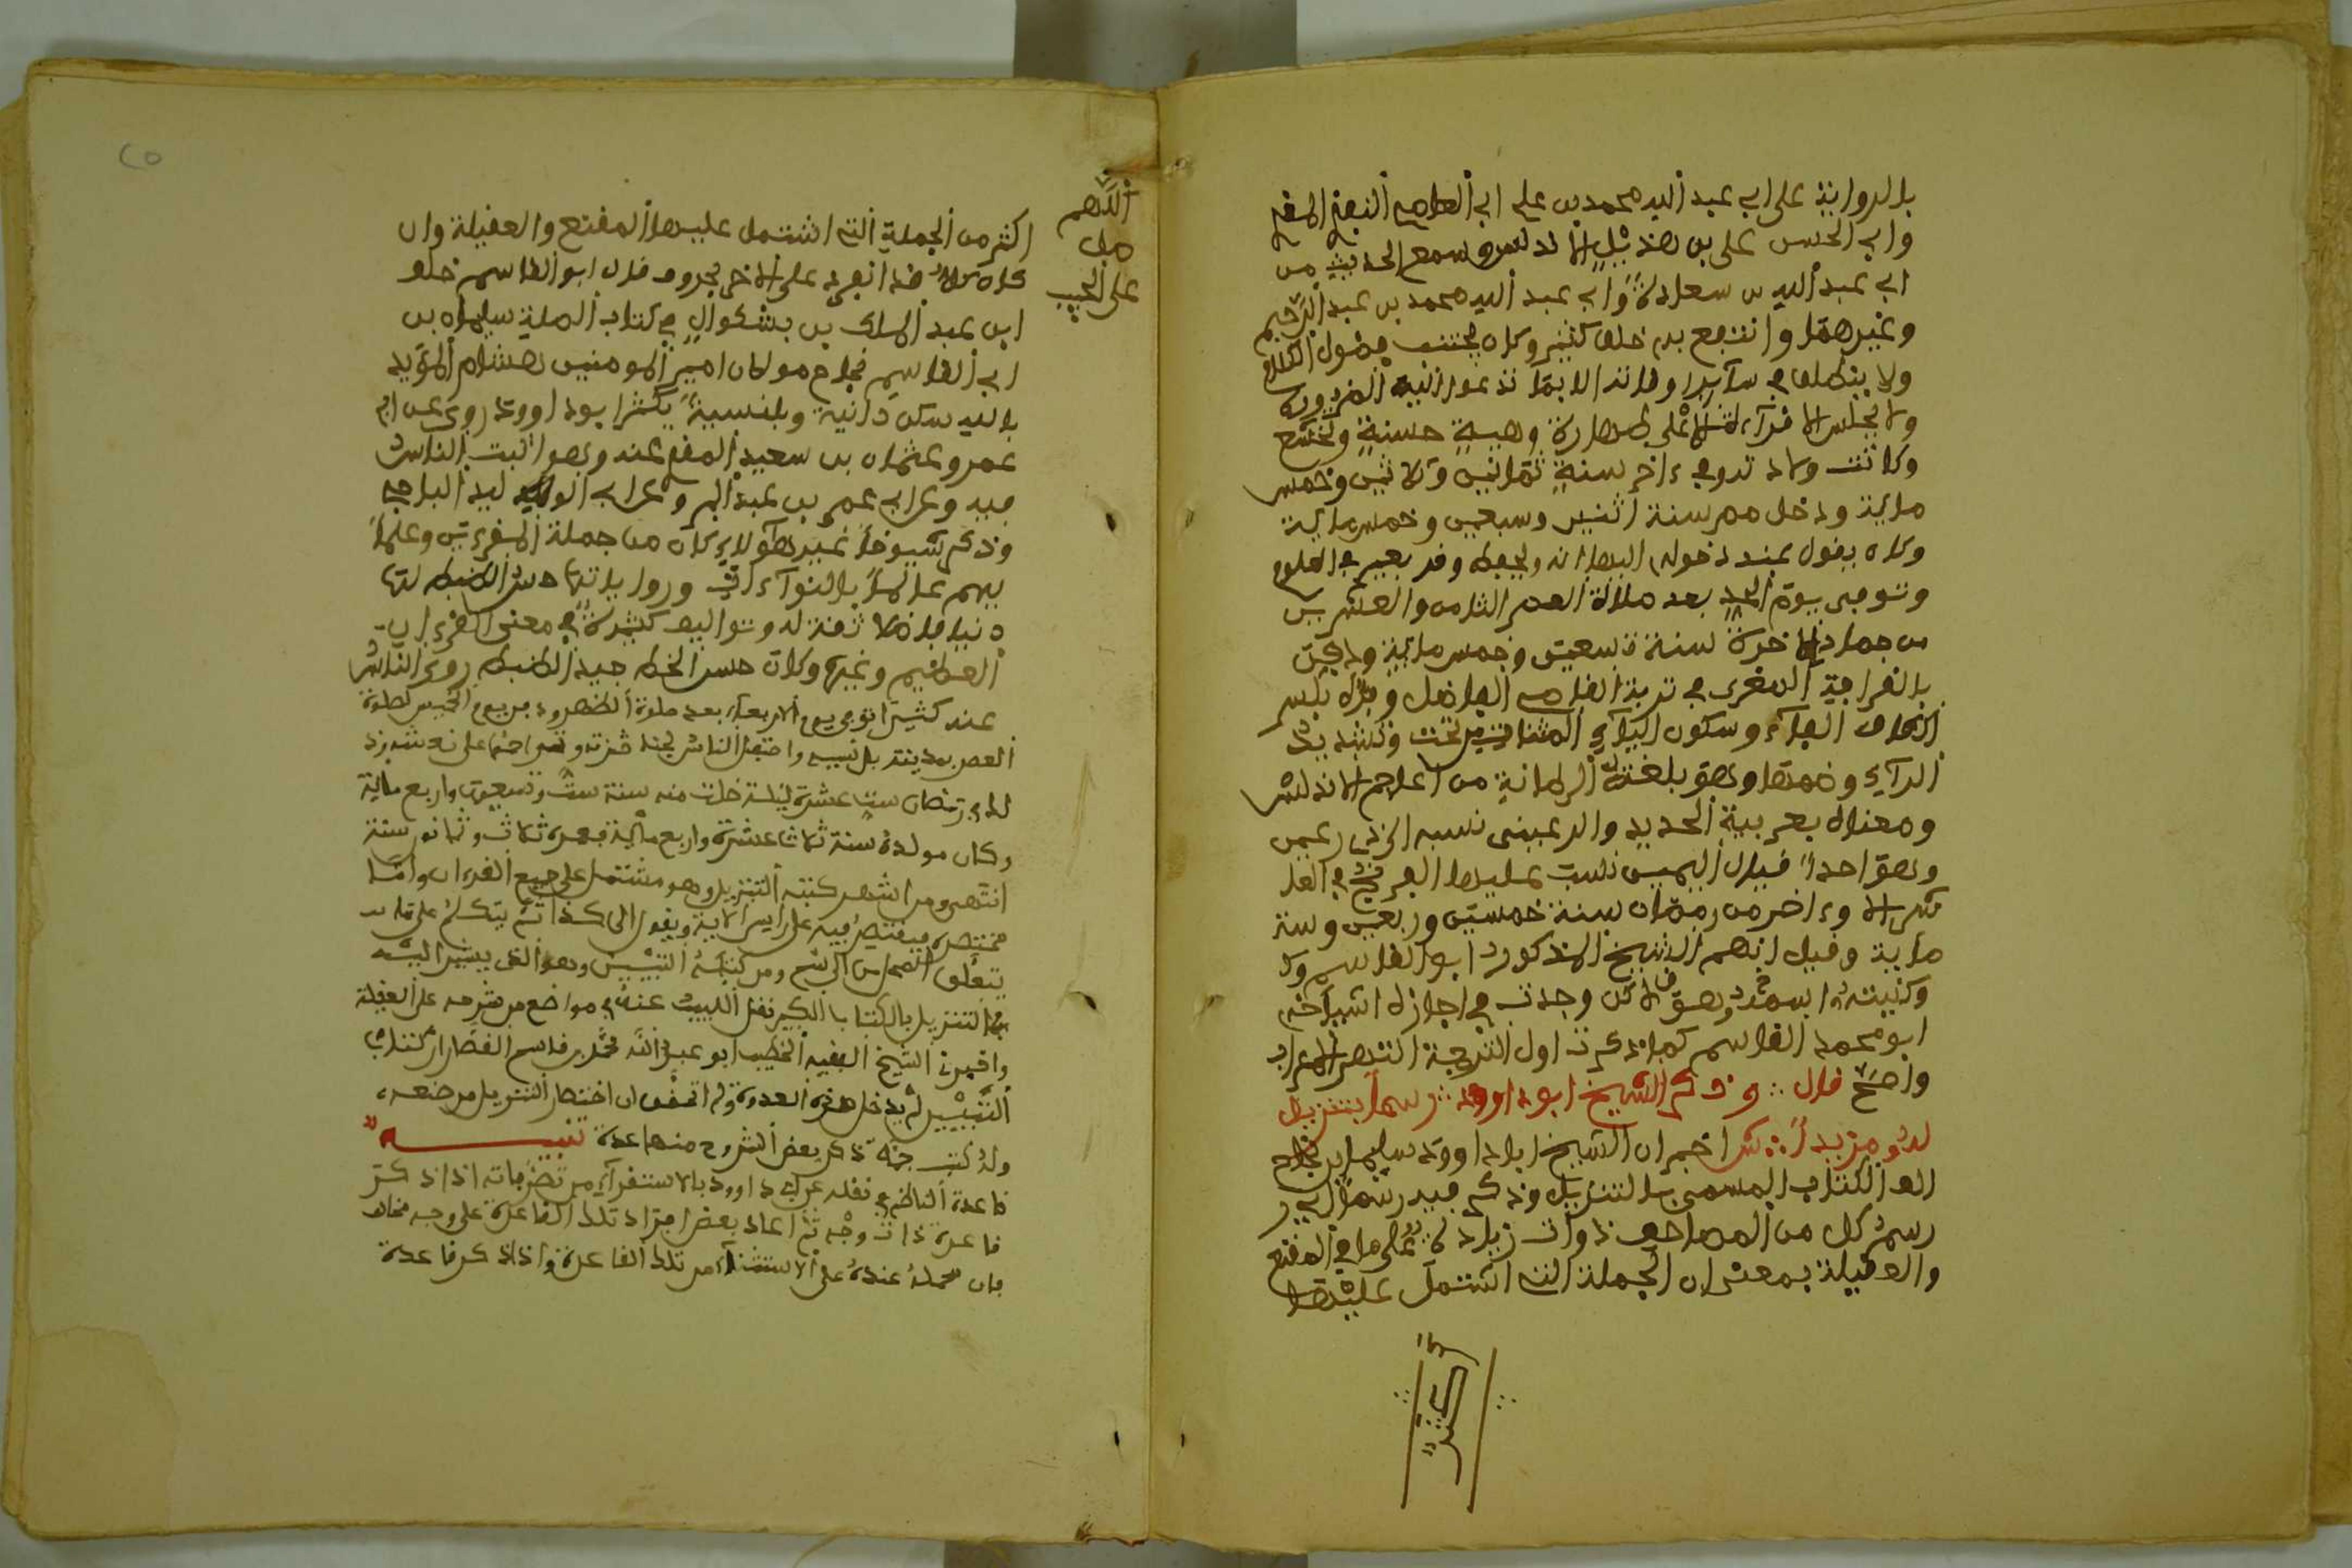 بالرواية على ابي عبد الله محمد بن علي ابي العاصي النفزي المقرئ
وابي الحسن علي بن هذيل الاندلسي وسمع الحديث من
ابي عبد الله بن سعادة وابي عبد الله محمد بن عبد الرحيم
وغيرهما وانتفع به خلق كثير وكان يجتنب فضول الكلام
ولا ينطق في سائر اوقاته الا بما تدعو اليه الضرورة
ولا يجلس الاقراء الا على طهارة وهيبة حسنة وتخشع
وكانت ولادته في ءاخر سنة ثمانية وثلاثين وخمس
ماية ودخل مصر سنة اثنين وسبعين وخمس ماية
وكان يقول عند دخوله اليها انه يحفظ وقر بعير من العلوم
وتوفي يوم الاحد بعد صلاة العصر الثامن والعشرين
من جمادى الاخرة سنة تسعين وخمس ماية ودفن
بالقرافة الصغرى في تربة القاضي الفاضل وفيره بكسر
الفاء وسكون الياء المثناة من تحت وتشديد
الراء وضمها وهو بلغة اللطانية من اعاجم الاندلس
ومعناه بعربية الحديد والرعيني نسبه الى ذي رعين
وهو احد قبايل اليمن نسبت عليها
وءاخر من رمضان سنة خمسين وربعين وستة
ماية وقيل اسم الشيخ المذكور ابو القاسم
وكنيته اسمه وهو لاكن وجدت في اجازة اشياخه
ابو محمد القاسم كما ذكرت اول الترجمة
واصح قال ∴ وذكر الشيخ ابو داوود ∴ رسما بتنزيل
له ومزيدا ∴ ش اخبر ان الشيخ ابا داوود سليمان بن نجاح
الف الكتاب المسمى بالتنزيل وذكر فيه رسما اي
رسم كل من المصاحف ذوات زيادة على ما في المقنع
والعقيلة بمعنى ان الجملة التي اشتمل عليها
اكثر
اللهم
صل
على الحبيب
اكثر من الجملة التي اشتمل عليها المقنع والعقيلة وان
كان كلا قد انفرد على الاخر بحروف قال ابو القاسم خلف
ابن عبد الملك بن بشكوال في كتاب الصلة سليمان بن
ابي القاسم نجاح مولى امير المومنين هشام المؤيد
بالله سكن دانية وبلنسية يكنى ابو داوود روى عن ابي
عمرو عثمان بن سعيد المقرئ عنه وهو اثبت الناس
فيه وعن ابي عمر بن عبد البر وعن ابي الوليد الباجي
وذكر شيوخا غير هولاء كان من جملة المقرءين وعلما
يهم عالما بالقراءات ورواياتها حسن الضبط لها
دينا فاضلا ثقة له وتواليف كثيرة في معنى القرءان
العظيم وغيره وكان حسن الخط جيد الضبط روى الناس
عنه كثيرا توفي يوم الاربعاء بعد صلوة الظهر ودفن يوم الخميس لصلوة
العصر بمدينة بلنسية واحتفل الناس لجنازته وتزاحموا على نعشه وذ
لك في رمضان لست عشرة ليلة خلت منه سنة ست وتسعين واربع ماية
وكان مولده سنة ثلاث عشرة واربع ماية فعمره ثلاث وثمانون سنة
انتهى ومن اشهر كتبه التنزيل وهو مشتمل على جميع القرءان واما
مختصره فيقتصر فيه على رأس الاية ويقول الى كذا ثم يتكلم على ما
يتعلق من الرسم ومن كتبه التبيين وهو الذي يشير اليه
في التنزيل بالكتاب الكبير نقل اللبيب عنه في مواضع من شرحه على العقيلة
واخبرني الشيخ الفقيه الخطيب ابو عبد الله محمد بن قاسم القصار ان كتاب
التبيين لم يدخل هذه العدوة ولم اتحقق ان اختصار التنزيل من صنعه،
وله كتب جمة ذكر بعض الشروح منها عدة تنبيه
قاعدة الناظم في نقله عن ابي داوود بالاستقراء من تصرفاته اذا ذكر
قاعدة ذات وجه ثم اعاد بعض افراد تلك القاعدة على وجه مخالف
فان محمله عنده على الاستثناء من تلك القاعدة واذا ذكر قاعدة
٢٥